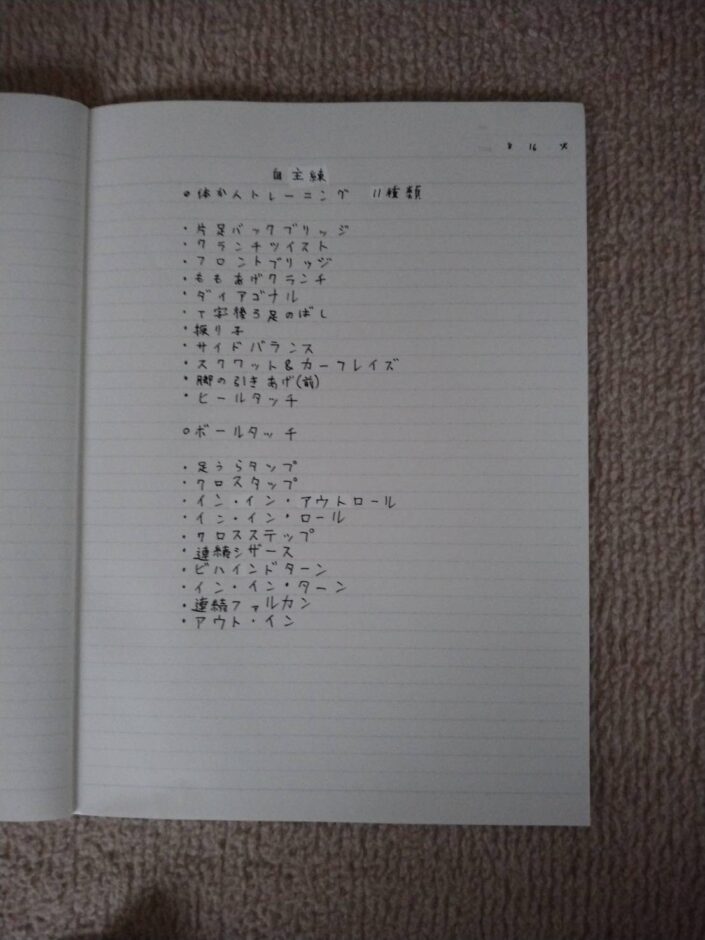 8 16 火
自主練
○体かんトレーニング 11種類
・片足バックブリッジ
・クランチツイスト
・フロントブリッジ
・ももあげクランチ
・ダイアゴナル
・T字後ろ足のばし
・振り子
・サイドバランス
・スクワット&カーフレイズ
・脚の引きあげ(前)
・ヒールタッチ
○ボールタッチ
・足うらタップ
・クロスタップ
・イン・イン・アウトロール
・イン・イン・ロール
・クロスステップ
・連続シザース
・ビハインドターン
・イン・イン・ターン
・連続ファルカン
・アウト・イン